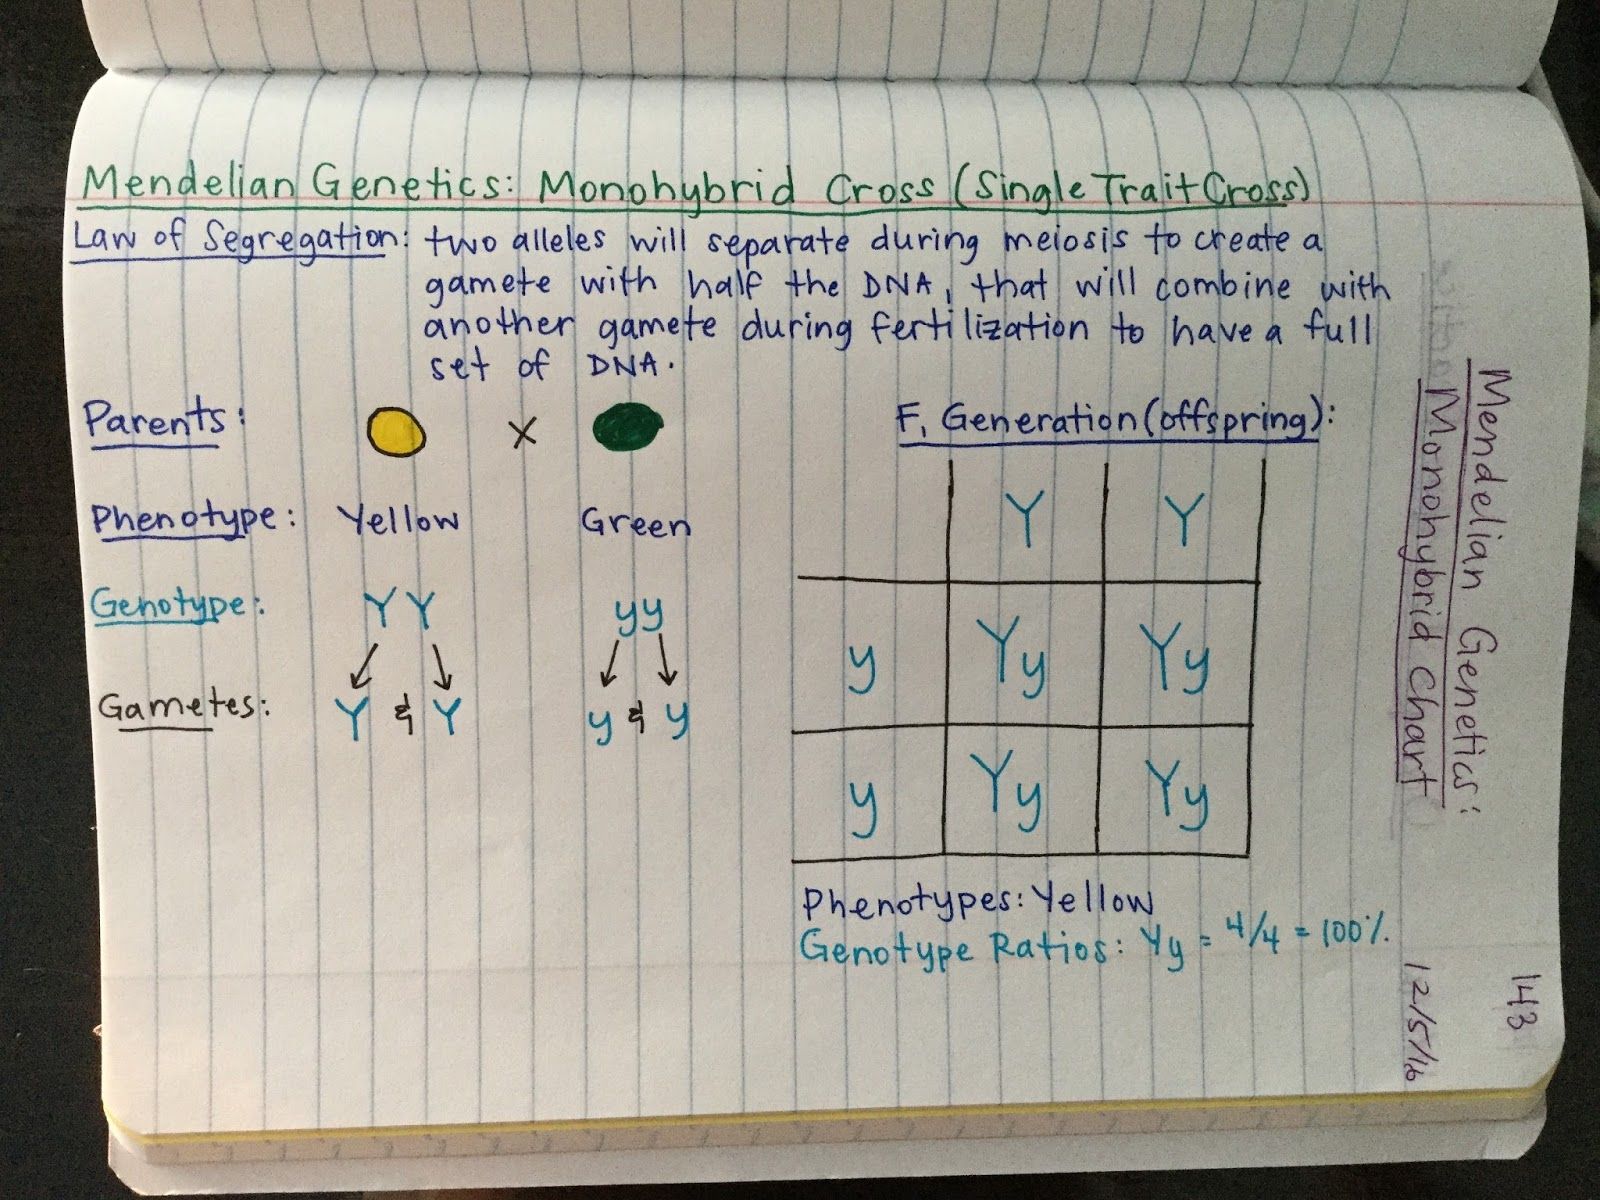 Mendelian Genetics: Monohybrid Cross (Single Trait Cross)
Law of Segregation: two alleles will separate during meiosis to create a
gamete with half the DNA, that will combine with
another gamete during fertilization to have a full
set of DNA.
Parents: X
Phenotype: Yellow Green
Genotype: YY yy
Gametes: Y & Y y & y
F₁ Generation (offspring):
Y Y
y Yy Yy
y Yy Yy
Phenotypes: Yellow
Genotype Ratios: Yy = 4/4 = 100%
Mendelian Genetics:
Monohybrid Chart
143
12/5/16